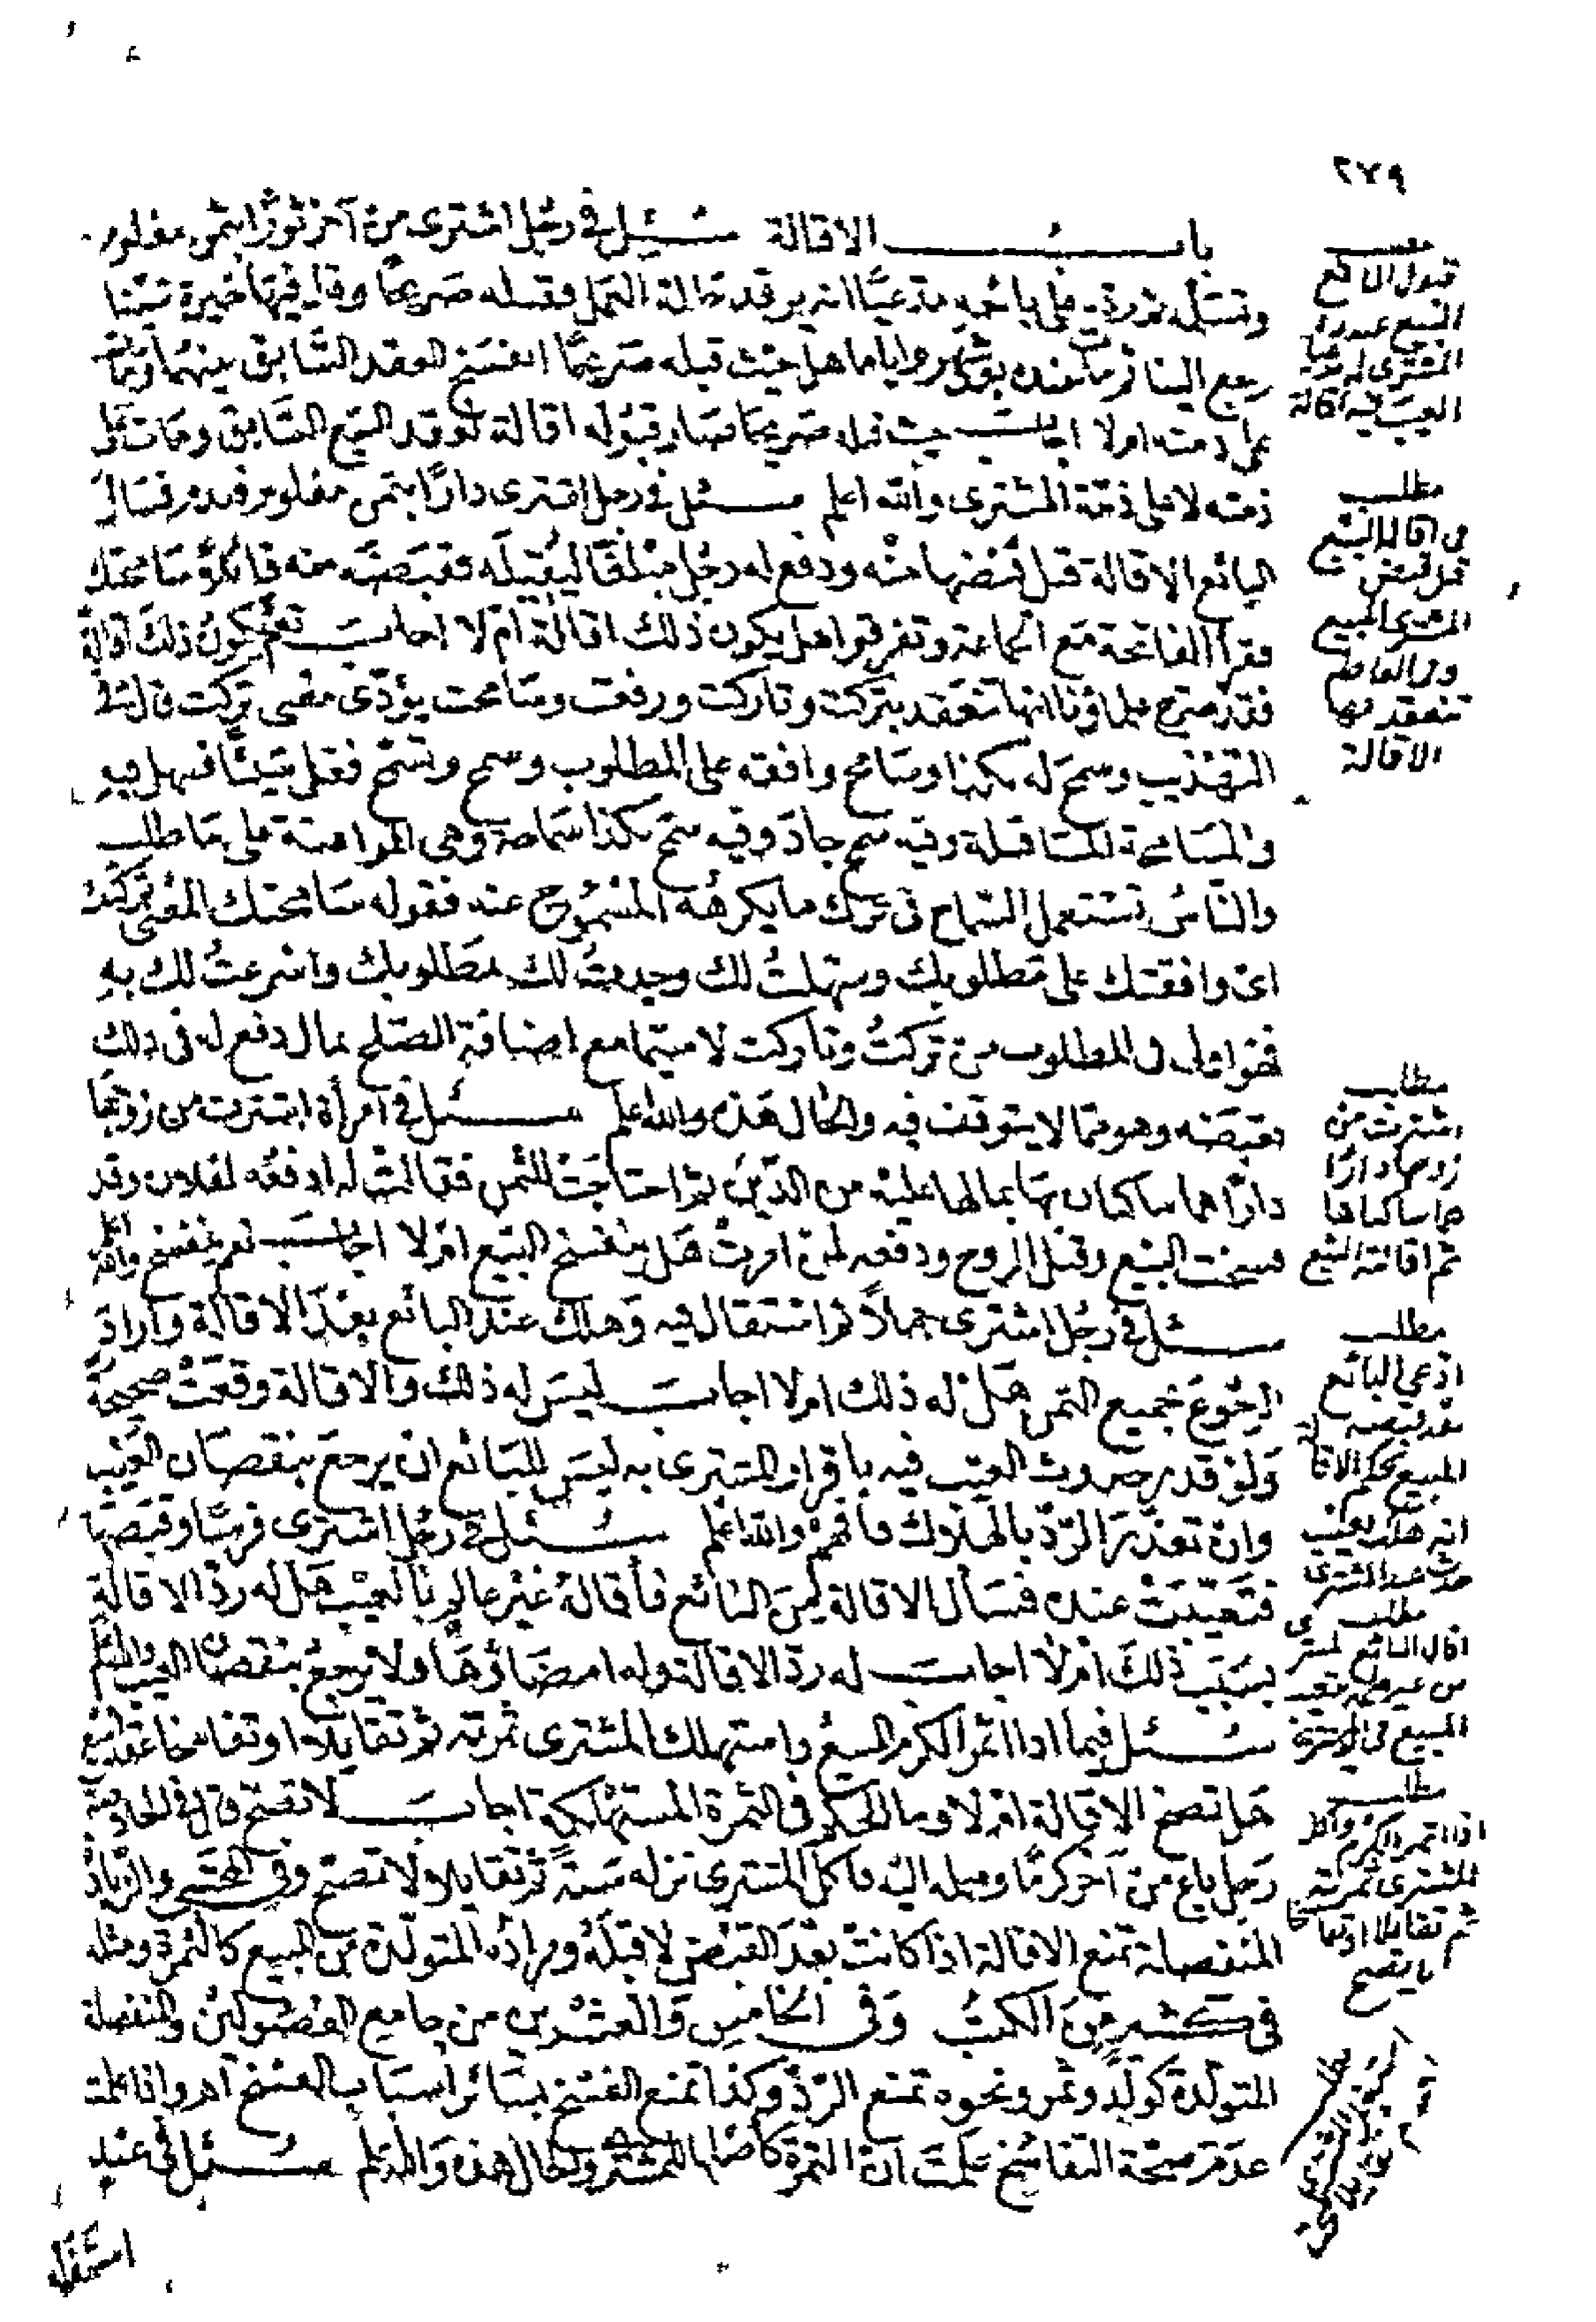 ٢٧٩
باب الاقالة سئل في رجل اشترى من آخر ثورا بثمن معلوم
وتسلمه ثم رده على بائعه مدعيا انه يرقد حالة العمل فقبله صريحا وقال فيها خيرة شيئنا
رجع الينا ثم مكث عنده اياما هل حيث قبله صريحا انفسخ العقد السابق بينهما ومات
على ذمته ام لا اجاب حيث قبله صريحا صار قبوله اقالة لعقد البيع السابق ومات على
ذمته لا على ذمة المشترى والله اعلم سئل في رجل اشترى دارا بثمن معلوم فندم فسال
البائع الاقالة قبل قبضها منه ودفع له رجل مبلغا ليقيله فقبضه منه قائلا سامحتك
فقرأ الفاتحة مع الجماعة وتفرقوا هل يكون ذلك اقالة ام لا اجاب نعم يكون ذلك اقالة
فقد صرح علماؤنا انها تنعقد بتركت وتاركت ورفعت وسامحت يؤدى معنى تركت قال في
التهذيب وسمح له بكذا وسامح وافقه على المطلوب وسمح وتسمح فعل شيئا فسهل فيه
والمسامحة المساهلة وفيه سمح جاد وفيه سمح بكذا سماحة وهى الموافقة على ما طلب
والناس تستعمل السماح فى ترك ما يكرهه المسموح عنه فقوله سامحتك المعنى تركت
اى وافقتك على مطلوبك وسهلت لك وجدت لك بمطلوبك واسرعت لك به
فهو اولى فى المطلوب من تركت وتاركت لا سيما مع اضافة الصلح بمال دفع له فى ذلك
فقبضه وهو مما لا يتوقف فيه والحال هذه والله اعلم سئل في امرأة اشترت من زوجها
دارا هما ساكنان بها بمالها عليه من الدين ثم احتاجت للثمن فقالت له ادفعه لفلان وقد
فسخت البيع وقبل الزوج ودفعه لمن امرت هل ينفسخ البيع ام لا اجاب نعم ينفسخ والله اعلم
سئل في رجل اشترى جملا ثم استقال فيه وهلك عند البائع بعد الاقالة واراد
الرجوع بجميع الثمن هل له ذلك ام لا اجاب ليس له ذلك والاقالة وقعت صحيحة
ولو قدر حدوث العيب فيه باقرار المشترى به ليس للبائع ان يرجع بنقصان العيب
وان تعذر الرد بالهلاك فافهم والله اعلم سئل في رجل اشترى فرسا وقبضها
فتعيبت عنده فسأل الاقالة من البائع فأقاله غير عالم بالعيب هل له رد الاقالة
بسبب ذلك ام لا اجاب له رد الاقالة وله امضاؤها ولا يرجع بنقصان العيب والله اعلم
سئل فيما اذا اثمر الكرم المبيع واستهلك المشترى ثمرته ثم تقايلا او تفاسخا عقد البيع
هل تصح الاقالة ام لا وما الحكم فى الثمرة المستهلكة اجاب لا تصح قال في الحاوى
رجل باع من آخر كرما وسلمه اليه فأكل المشترى نزله سنة ثم تقايلا لا تصح وفى المجتبى والزيادة
المنفصلة تمنع الاقالة اذا كانت بعد القبض لا قبله ومراده المتولدة من المبيع كالثمرة ومثله
فى كثير من الكتب وفى الخامس والعشرين من جامع الفصولين والمنفصلة
المتولدة كولد وثمر ونحوه تمنع الرد وكذا تمنع الفسخ بسائر اسباب الفسخ اهـ واذا علمت
عدم صحة التفاسخ علمت ان الثمرة للمشترى والحال هذه والله اعلم سئل في عنب
استغله
مطلب
قبول البائع
المبيع عند رد
المشترى له مدعيا
العيب فيه اقالة
مطلب
فى اقالة البيع
قبل قبض
المشترى المبيع
وفى الفاظ
تنعقد بها
الاقالة
مطلب
اشترت من
زوجها دارا
هما ساكناها
ثم اقالته البيع
مطلب
ادعى البائع
بعد قبضه
المبيع بحكم الاقالة
انه هلك بعيب
حدث عند المشترى
مطلب
اقال البائع المشترى
من غير علمه بتعيب
المبيع فى يد المشترى
مطلب
اذا اثمر الكرم وأكل
المشترى ثمرته
ثم تقايلا او تفاسخا
لا يصح